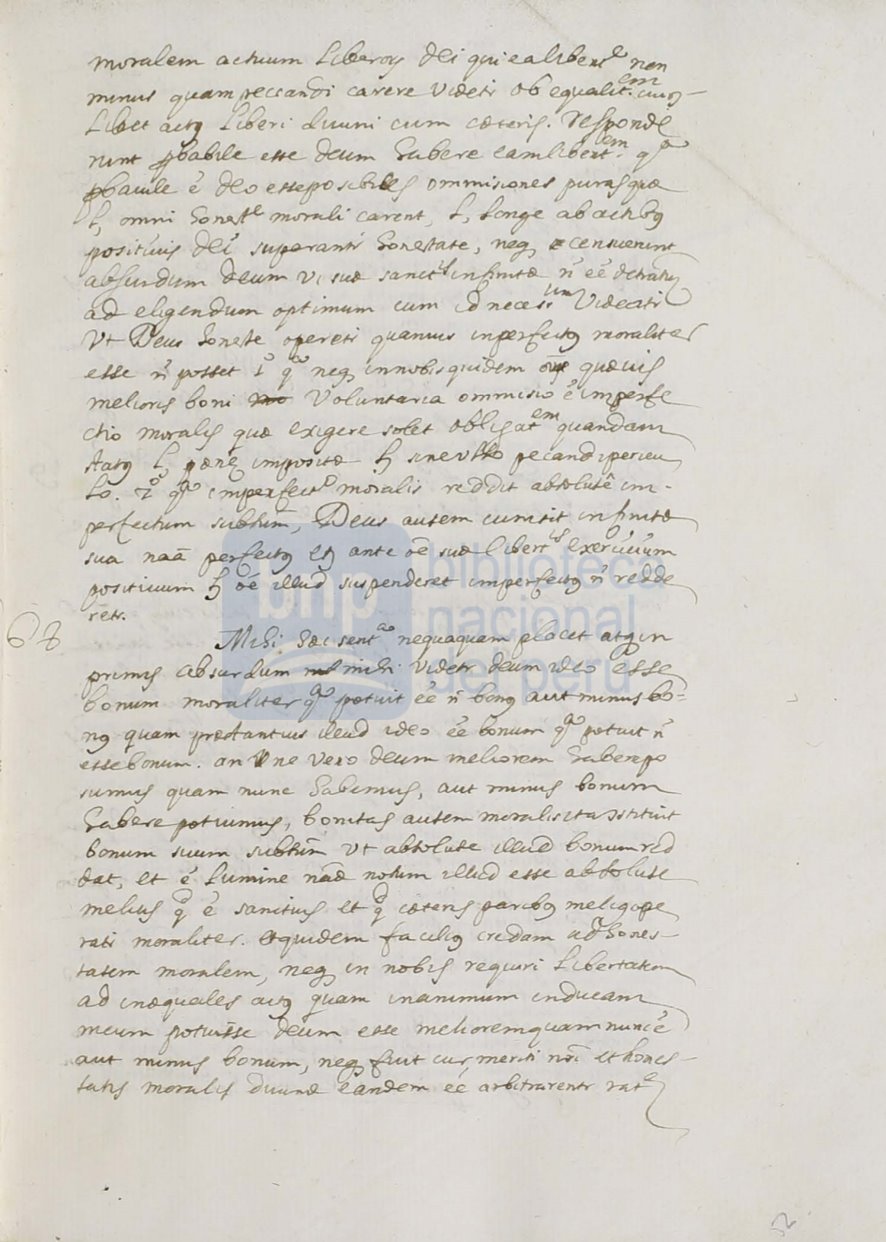 moralem actuum Liberor Dei qui ea libert.e non
minus quam peccandi carere Videtr ob equalit.em cuius
Libet actus Liberi divini cum cæteris. Responde
runt probabile esse Deum habere eam libert.em qa
probavile ē Deo esse posibiles ommisiones puras quæ
l, omni honest.e morali carent, l, longe ab actibus
positivis Dei superantr honestate, neq censuerunt
absurdum Deum vi suæ sanct.is infinitæ n̄ eē
ad eligendum optimum cum id neces.ium Videatr
Vt Deus honeste operetr quamvis inperfectus moraliter
esse n̄ posset 1o qa neq in nobis quidem quævis
melioris boni voluntaria ommisio ē imperfe
ctio moralis quæ exigere solet obligat.em quandam
status l, pænæ impositæ sine ullo pecandi pericu
lo. 2o qa imperfect.o moralis reddit absolutē im-
perfectum subtum, Deus autem cum sit infinitæ
sua naā perfectus etsi ante oē suæ libert.is exercitium
positivum oē illud suspenderet imperfectus n̄ redde
retr.
68 Mihi hæc sent.a nequaquam placet atq in
primis absurdum mihi Videtr Deum ideo esse
bonum moraliter qa potuit eē n̄ bonus aut minus bo=
nus quam præstantius illud ideo eē bonum qa potuit n̄
esse bonum. an ne vero Deum meliorem habere po
sumus quam nunc habemus, aut minus bonum
habere potuimus, bonitas autem moralis ita
bonum suum subtum Vt absolute illud bonum red
dat, et ē lumine naæ notum illud esse absolute
melius qd ē sanctius et qd cæteris paribus melius ope
ratr moraliter. equidem facilius credam ad hones-
tatem moralem, neq in nobis requiri Libertatem
ad inæquales actus quam in animum inducam
meum potuisse Deum esse meliorem quam nunc ē
aut minus bonum, neq fuit cur meriti nri et hones-
tatis moralis divinæ eandem eē arbitrarentr rat.e
bnp biblioteca
nacional
del perú